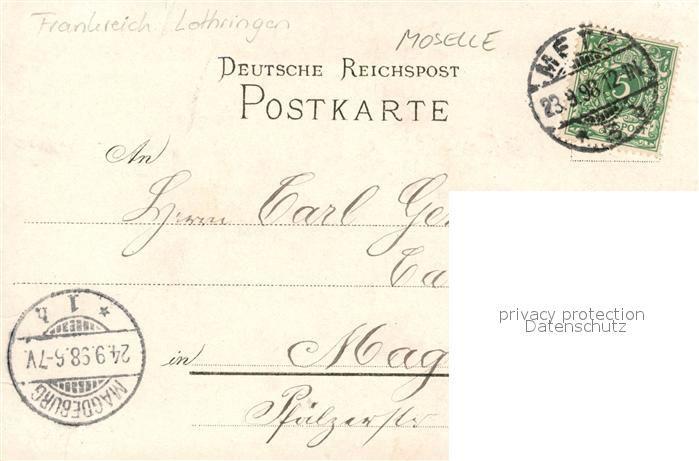 Frankreich / Lothringen
MOSELLE
DEUTSCHE REICHSPOST
POSTKARTE
METZ
23.9.98.12-1N.
5
An
Herrn Carl Ge
Ca
in Mag
Pfälzerstr
MAGDEBURG
24.9.98.6-7V.
* 1 h
privacy protection
Datenschutz